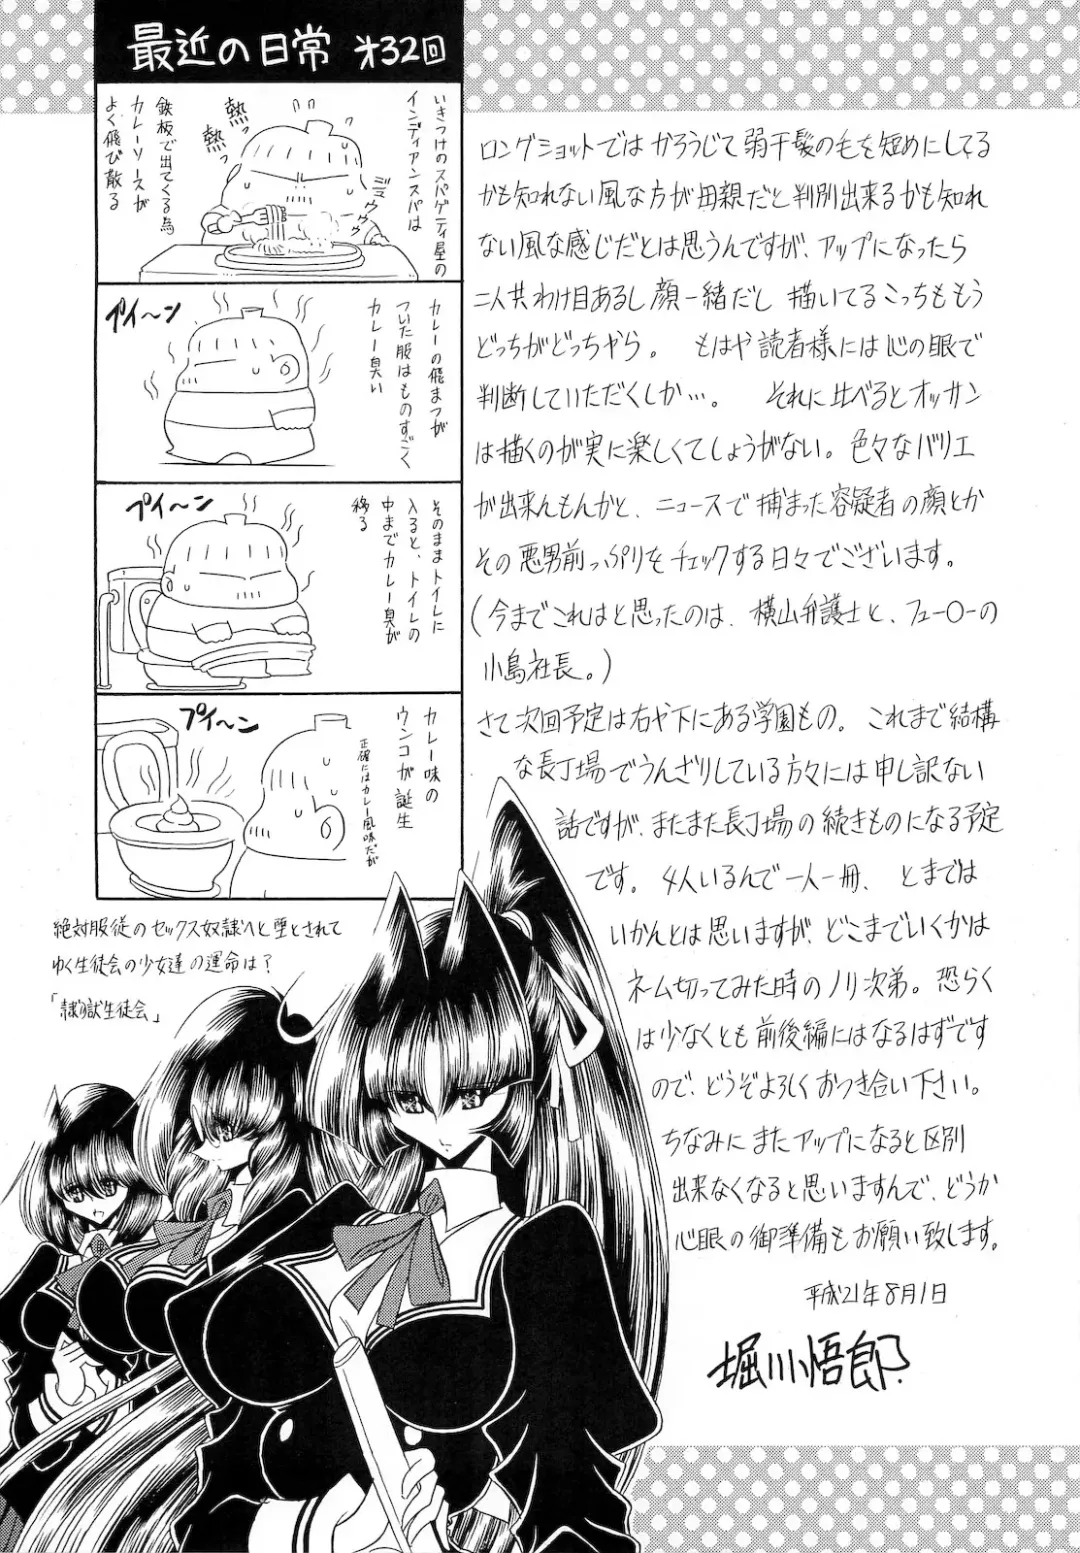 最近の日常 オ32回
いきつけのスパゲティ屋の
インディアンスパは
熱っ
熱っ
鉄板で出てくる為
カレーソースが
よく飛び散る
カレーの飛まつが
ついた服はものすごく
カレー臭い
プイ〜ン
そのままトイレに
入ると、トイレの
中までカレー臭が
移る
プイ〜ン
カレー味の
ウンコが誕生
正確にはカレー風味だが
プイ〜ン
ロングショットではかろうじて弱干髪の毛を短めにしてる
かも知れない風な方が母親だと判別出来るかも知れ
ない風な感じだとは思うんですが、アップになったら
二人共わけ目あるし顔一緒だし 描いてるこっちももう
どっちがどっちやら。 もはや読者様には心の眼で
判断していただくしか…。 それに比べるとオッサン
は描くのが実に楽しくてしょうがない。色々なバリエ
が出来んもんかと、ニュースで捕まった容疑者の顔とか
その悪男前っぷりをチェックする日々でございます。
(今までこれはと思ったのは、横山弁護士と、フューロ一の
小島社長。)
さて次回予定は右や下にある学園もの。 これまで結構
な長丁場でうんざりしている方々には申し訳ない
話ですが、またまた長丁場の続きものになる予定
です。4人いるんで一人一冊、 とまでは
いかんとは思いますが、どこまでいくかは
ネーム切ってみた時のノリ次弟。恐らく
は少なくとも前後編にはなるはずです
ので、どうぞよろしくおつき合い下さい。
ちなみにまたアップになると区別
出来なくなると思いますんで、どうか
心眼の御準備もお願い致します。
平成21年8月1日
堀川悟郎